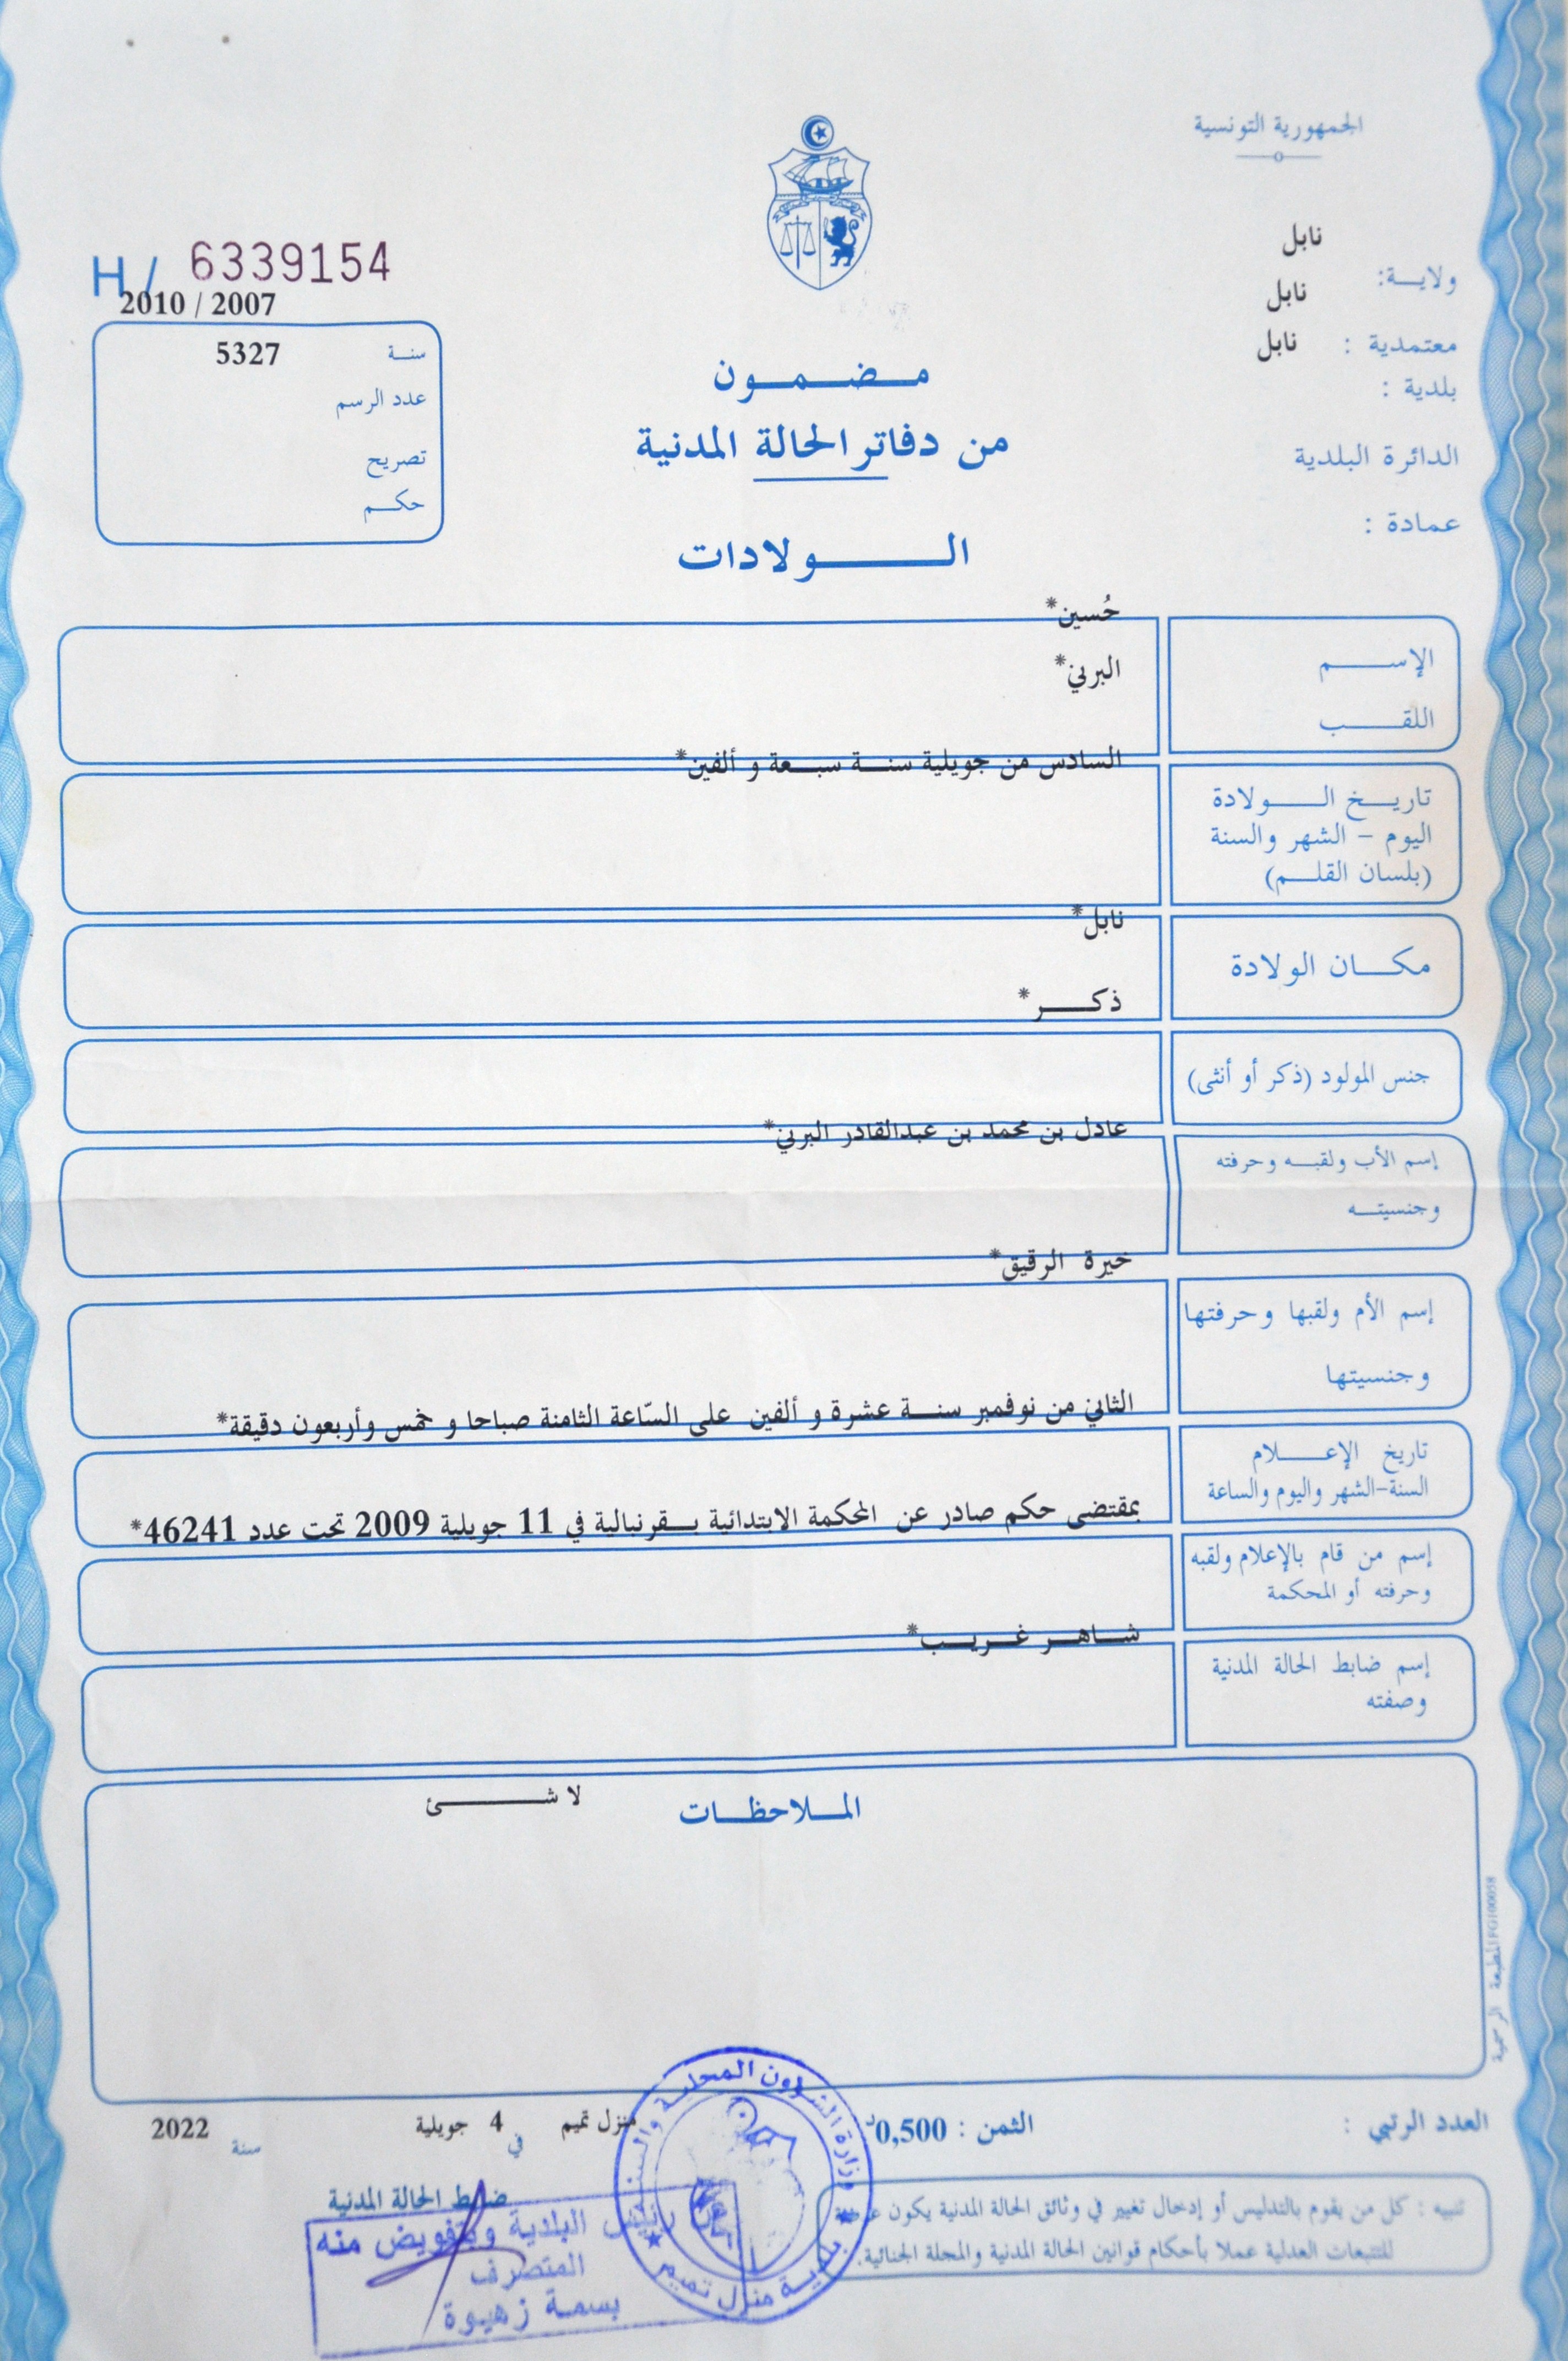 الجمهورية التونسية
نابل
ولايـــة:
نابل
معتمدية :
نابل
بلدية :
الدائرة البلدية
عمادة :
H / 6339154
2010 / 2007
سنــة
5327
عدد الرسم
تصريح
حكــم
مـــضـــمـــون
من دفاتر الحالة المدنية
الـــــولادات
حُسين*
الإســــــم
البرني*
اللقـــــب
السادس من جويلية سنـــة سبـــعة و ألفين*
تاريــخ الـــــولادة
اليوم - الشهر والسنة
(بلسان القلـــم)
نابل*
مكـــان الولادة
ذكـــــر*
جنس المولود (ذكر أو أنثى)
عادل بن محمد بن عبدالقادر البرني*
إسم الأب ولقبــه وحرفته
وجنسيتـــه
خيرة الرقيق*
إسم الأم ولقبها وحرفتها
وجنسيتها
الثاني من نوفمبر سنـــة عشرة و ألفين على السّاعة الثامنة صباحا و خمس وأربعون دقيقة*
تاريخ الإعـــــلام
السنة-الشهر واليوم والساعة
بمقتضى حكم صادر عن المحكمة الابتدائية بــقرنبالية في 11 جويلية 2009 تحت عدد 46241*
إسم من قام بالإعلام ولقبه
وحرفته أو المحكمة
شـــاهـــر غـــريـــب*
إسم ضابط الحالة المدنية
وصفته
المـــلاحظـــات
لا شـــــــئ
المطبعة الرسمية
العدد الرتبي :
الثمن : 0,500د
منزل تميم في 4 جويلية سنة 2022
ضابط الحالة المدنية
تنبيه : كل من يقوم بالتدليس أو إدخال تغيير في وثائق الحالة المدنية يكون عرضة
للتتبعات العدلية عملا بأحكام قوانين الحالة المدنية والمجلة الجنائية.
وزارة الشؤون المحلية والبيئة
بلدية منزل تميم
رئيس البلدية وبتفويض منه
المتصرف
بسمة زهيوة